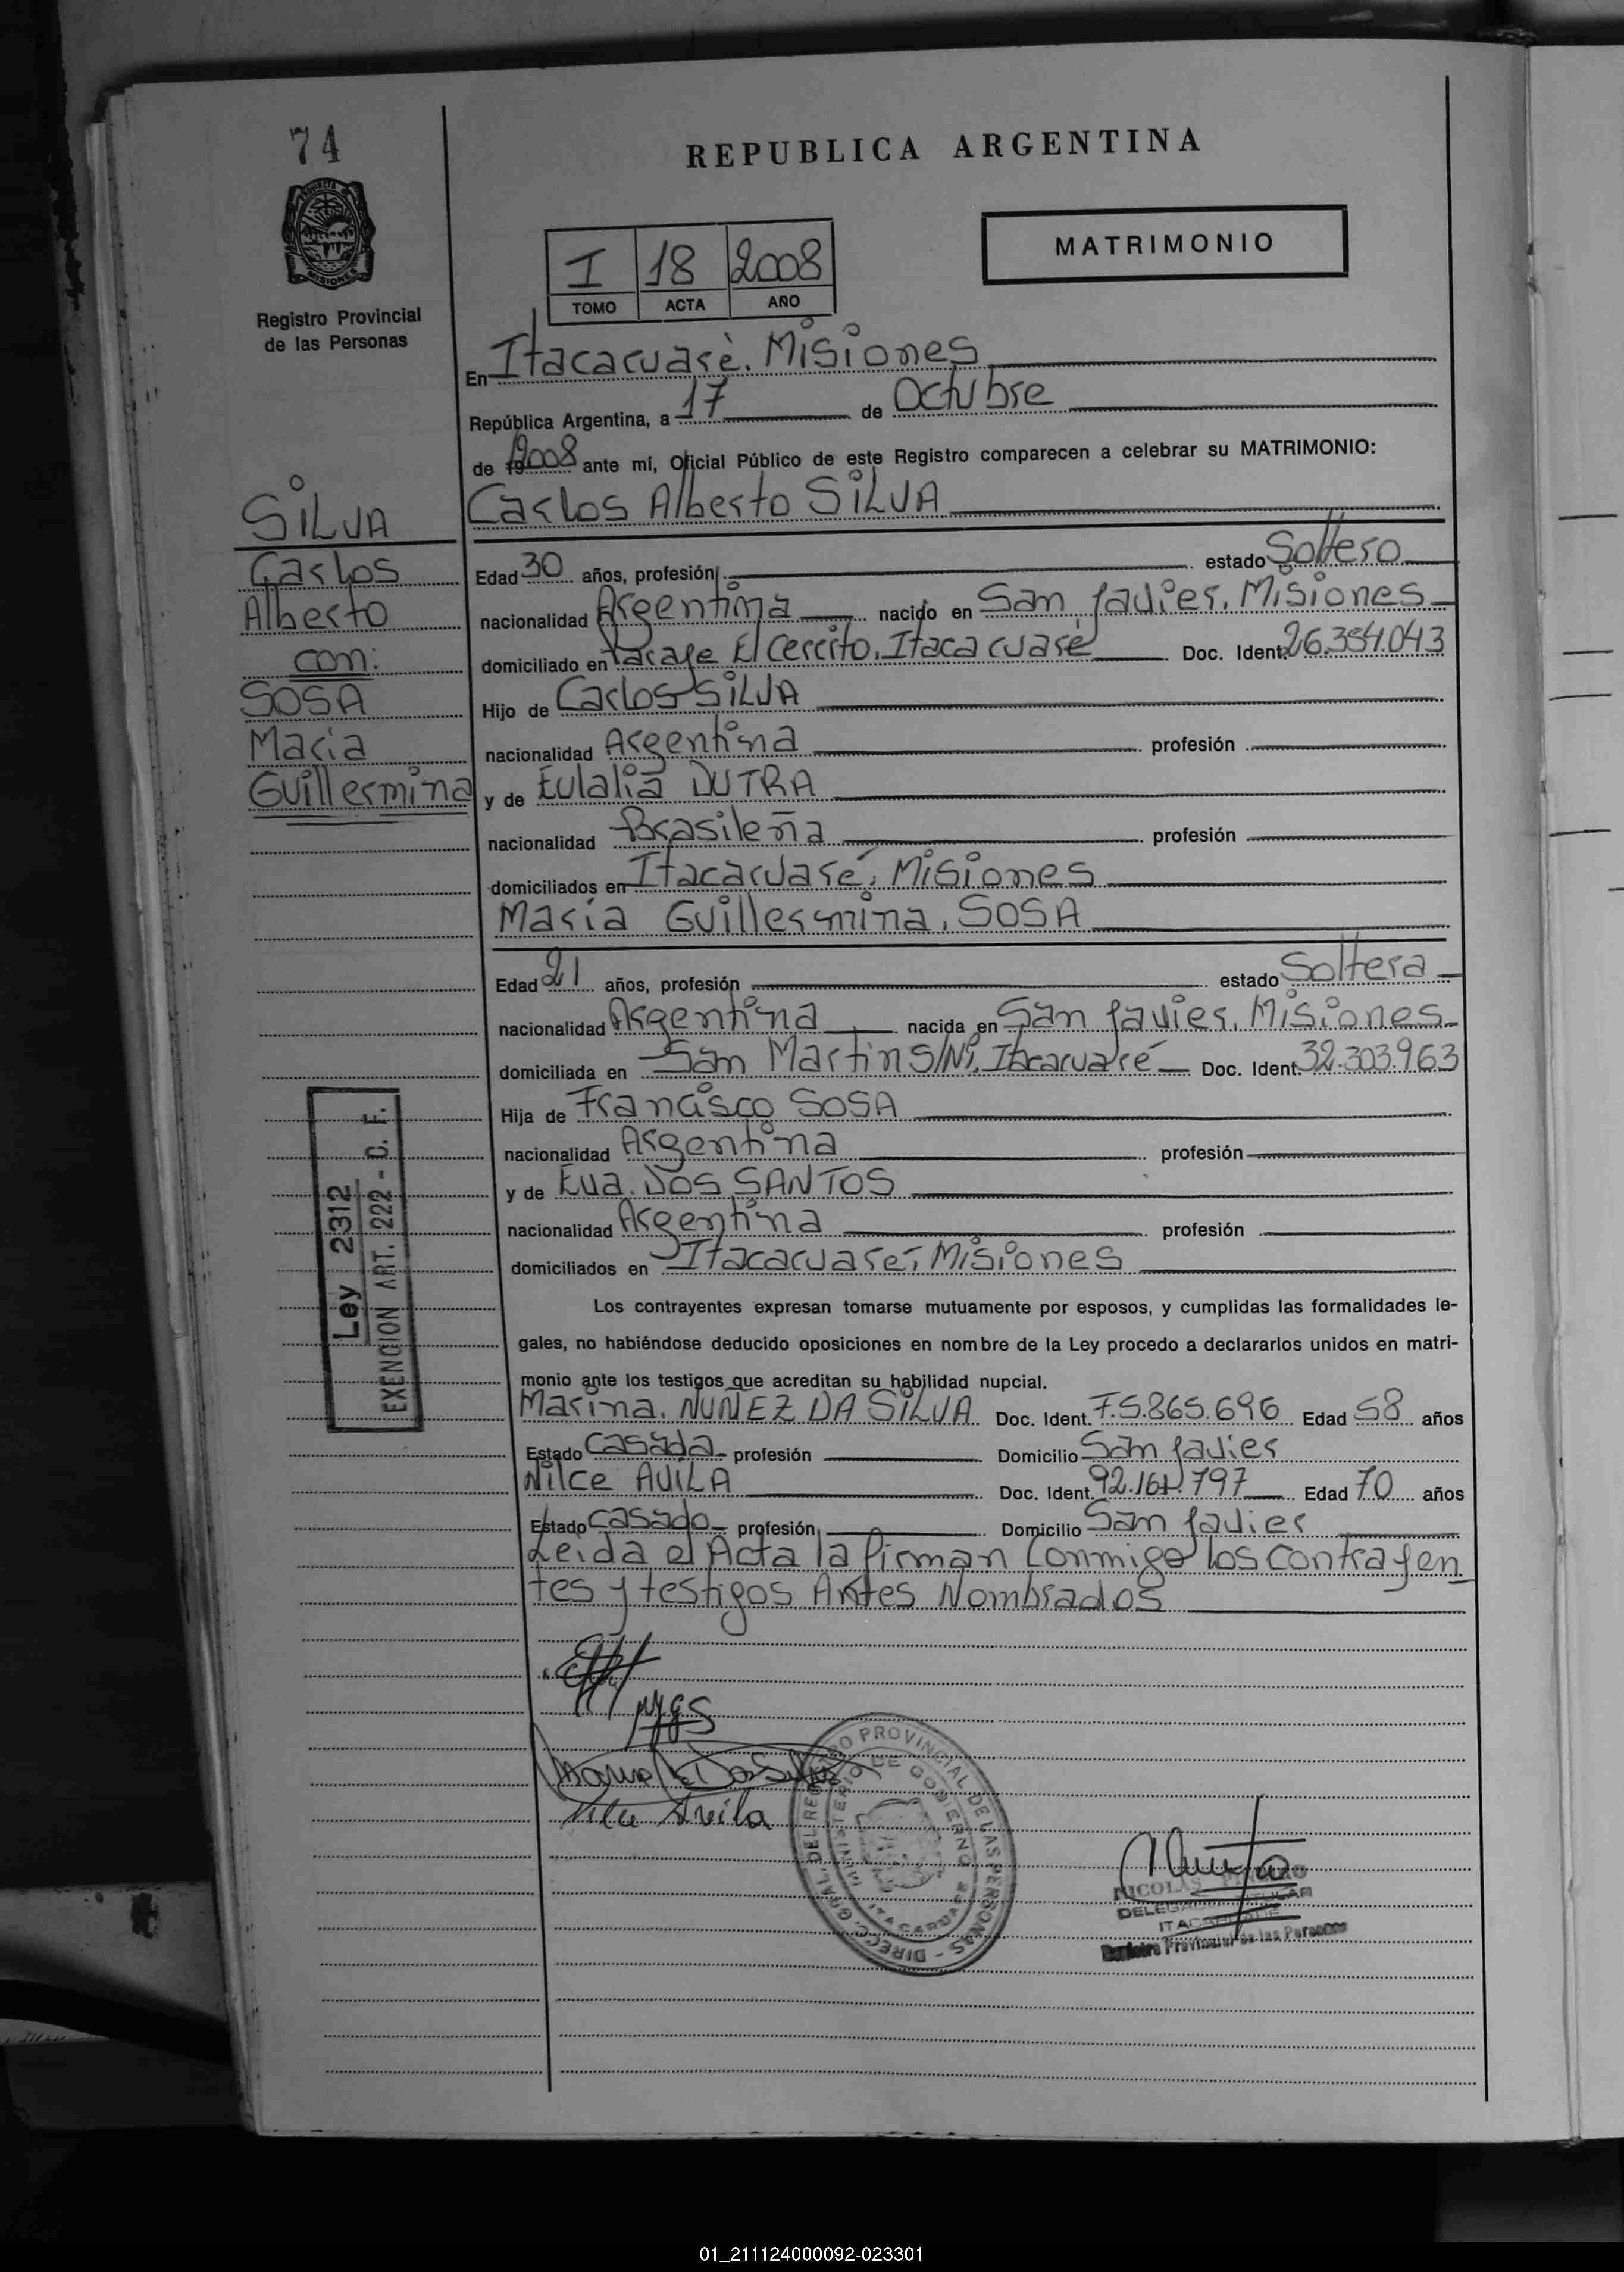 74
REPUBLICA ARGENTINA
PROVINCIA DE
MISIONES
Registro Provincial
de las Personas
I 18 2008
TOMO ACTA AÑO
MATRIMONIO
En Itacaruarè. Misiones
República Argentina, a 17 de Octubre
de 2008 ante mi, Oficial Público de este Registro comparecen a celebrar su MATRIMONIO:
Carlos Alberto SILVA
SILVA
Carlos
Alberto
con:
SOSA
Maria
Guillermina
Edad 30 años, profesión estado Soltero
nacionalidad Argentina nacido en San Javier. Misiones
domiciliado en Paraje El Cerrito. Itacaruaré Doc. Ident. 26.354.043
Hijo de Carlos SILVA
nacionalidad Argentina profesión
y de Eulalia DUTRA
nacionalidad Brasileña profesión
domiciliados en Itacaruaré, Misiones
Maria Guillermina. SOSA
Edad 21 años, profesión estado Soltera
nacionalidad Argentina nacida en San Javier. Misiones
domiciliada en San Martin S/Nº. Itacaruaré Doc. Ident. 32.303.963
Hija de Francisco SOSA
nacionalidad Argentina profesión
y de Eva. DOS SANTOS
nacionalidad Argentina profesión
domiciliados en Itacaruaré, Misiones
Ley 2312
EXENCION ART. 222 - C. F.
Los contrayentes expresan tomarse mutuamente por esposos, y cumplidas las formalidades le-
gales, no habiéndose deducido oposiciones en nombre de la Ley procedo a declararlos unidos en matri-
monio ante los testigos que acreditan su habilidad nupcial.
Marina. NUÑEZ DA SILVA Doc. Ident. F.5.865.696 Edad 58 años
Estado Casada profesión Domicilio San Javier
Nilce AVILA Doc. Ident. 92.161.797 Edad 70 años
Estado Casado profesión Domicilio San Javier
Leida el Acta la firman Conmigo los Contrayen
tes y testigos Antes Nombrados
MGS
Nilce Avila
DIRECC. GRAL. DEL REGISTRO PROVINCIAL DE LAS PERSONAS -
MINISTERIO DE GOBIERNO
ITACARUARE
NICOLAS
DELEGADO TITULAR
ITACARUARE
Registro Provincial de las Personas
01_211124000092-023301